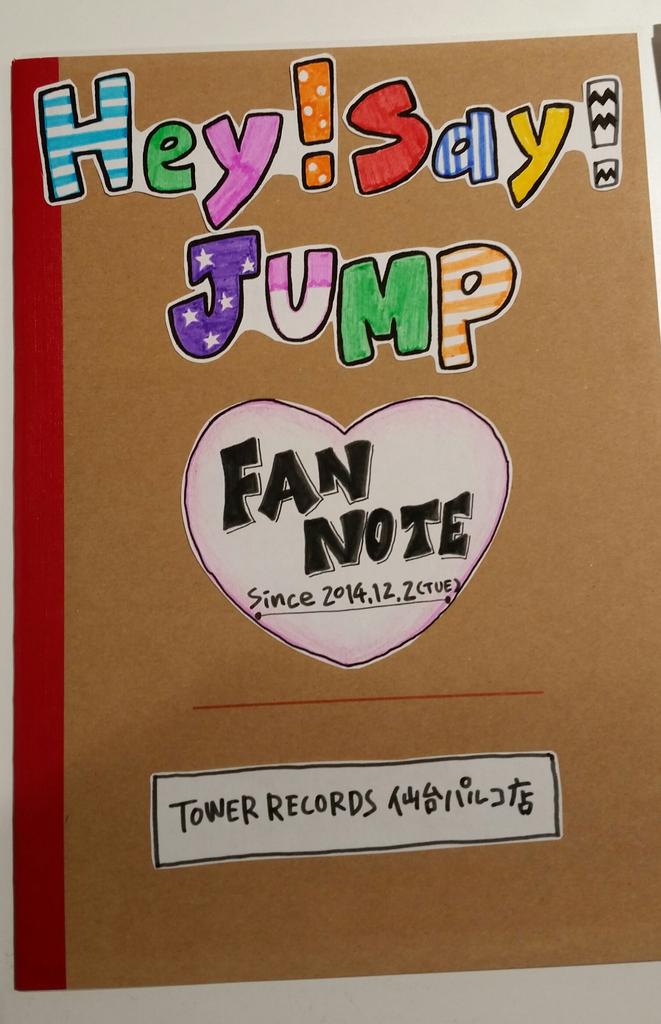 Hey! Say!
JUMP
FAN
NOTE
Since 2014.12.2(TUE)
TOWER RECORDS 仙台パルコ店